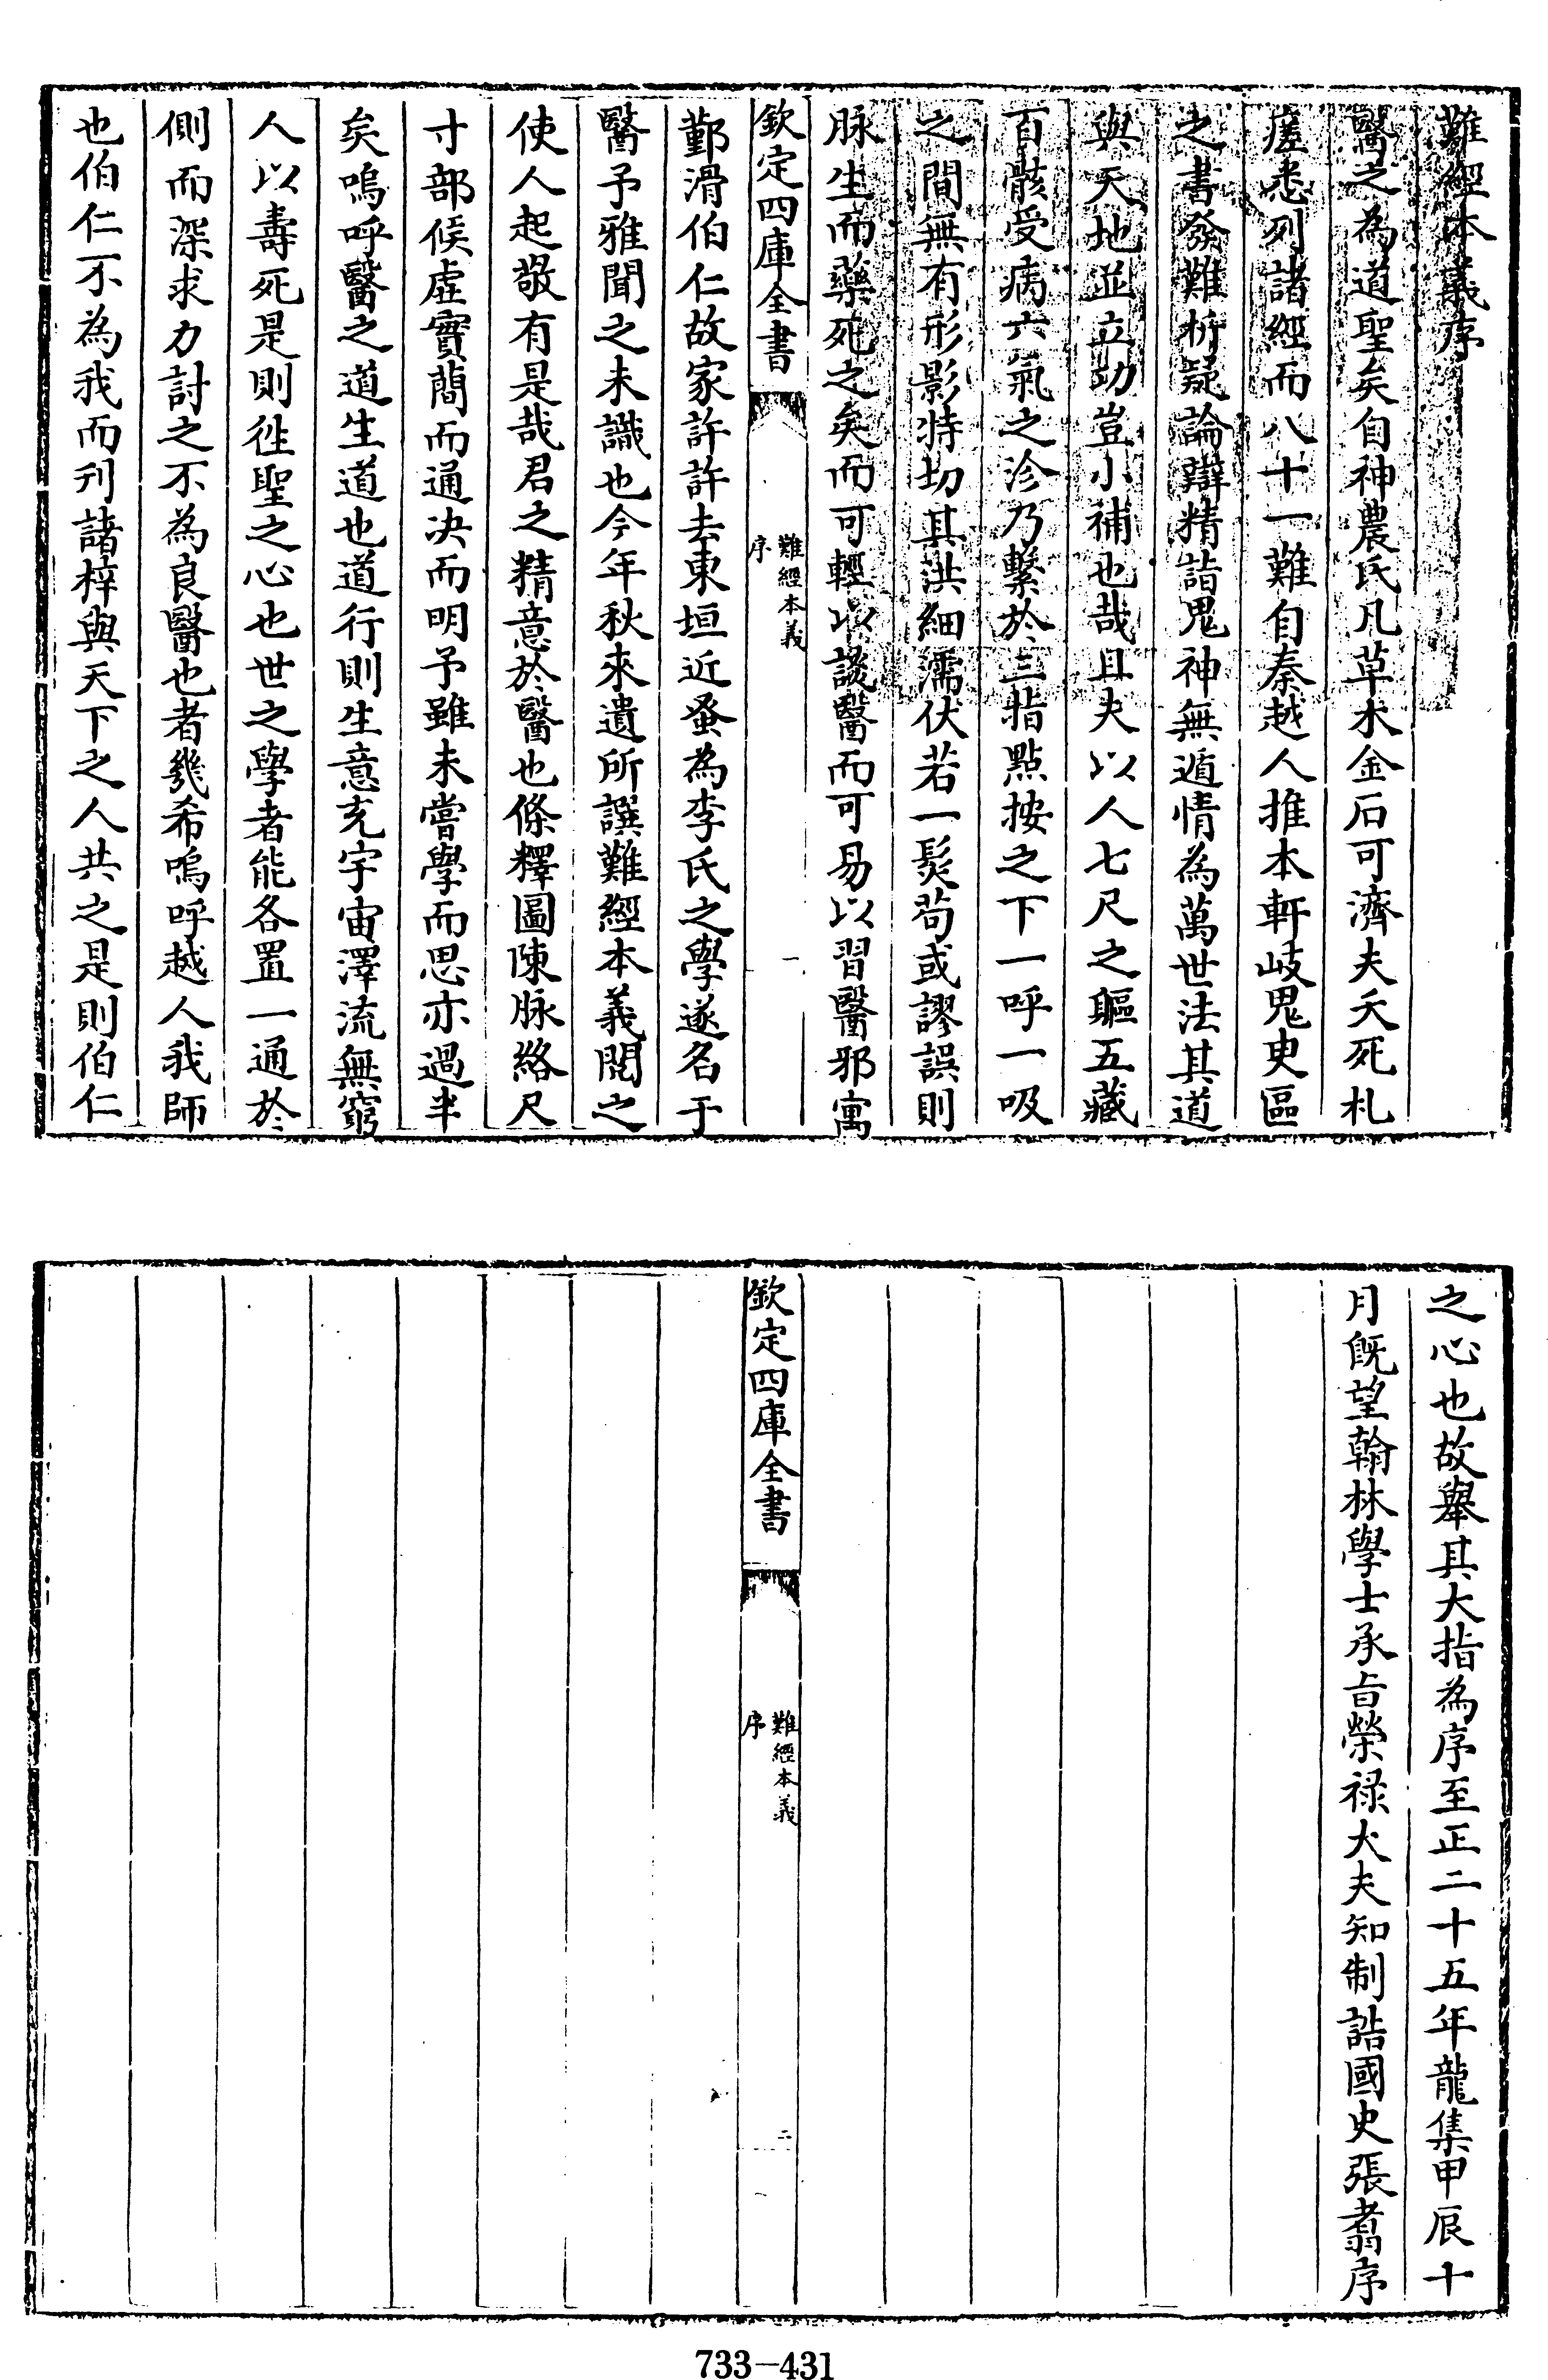 難經本義序
醫之為道聖矣自神農氏凡草木金石可濟夫夭死札
瘥悉列諸經而八十一難自秦越人推本軒岐鬼臾區
之書發難析疑論辯精詣鬼神無遁情為萬世法其道
與天地並立功豈小補也哉且夫以人七尺之軀五藏
百骸受病六氣之沴乃繫於三指點按之下一呼一吸
之間無有形影特切其洪細濡伏若一髮茍或謬誤則
脉生而藥死之矣而可輕以談醫而可易以習醫邪寓
欽定四庫全書
難經本義
序
一
鄞滑伯仁故家許許去東垣近蚤為李氏之學遂名于
醫予雅聞之未識也今年秋來遺所譔難經本義閱之
使人起敬有是哉君之精意於醫也條釋圖陳脉絡尺
寸部候虛實蕳而通决而明予雖未嘗學而思亦過半
矣嗚呼醫之道生道也道行則生意充宇宙澤流無窮
人以壽死是則徃聖之心也世之學者能各置一通於
側而深求力討之不為良醫也者幾希嗚呼越人我師
也伯仁不為我而刋諸梓與天下之人共之是則伯仁
之心也故舉其大指為序至正二十五年龍集甲辰十
月旣望翰林學士承㫖榮禄大夫知制誥國史張翥序
欽定四庫全書
難經本義
序
二
733-431